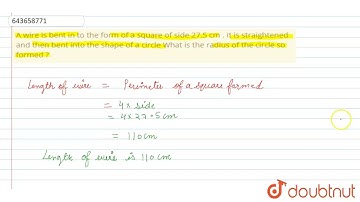 643658771
A wire is bent in to the form of a square of side 27.5 cm . It is straightened
and then bent into the shape of a circle What is the radius of the circle so
formed ?
Length of wire = Perimeter of a square formed
= 4 x side
= 4 x 27.5 cm
= 110 cm
Length of wire is 110 cm
doubtnut